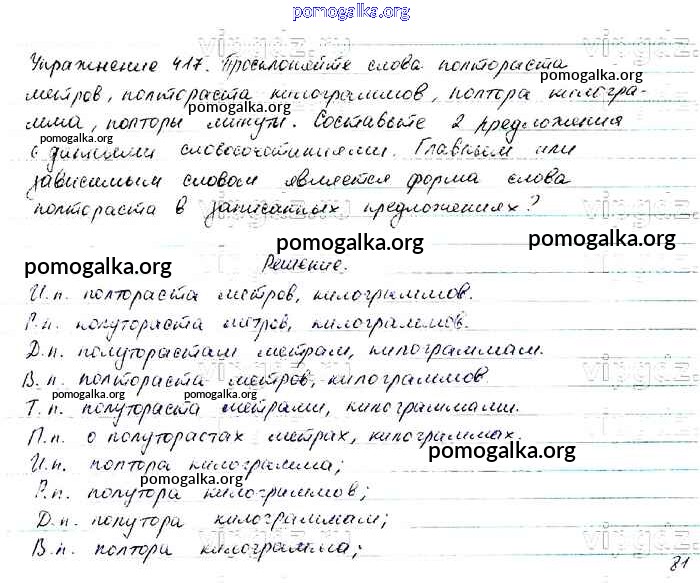 pomogalka.org
Упражнение 417. Просклоняйте слова полтораста
pomogalka.org
метров, полтораста килограммов, полтора килогра-
pomogalka.org
мма, полторы минуты. Составьте 2 предложения
pomogalka.org
с данными словосочетаниями. Главным или
зависимым словом является форма слова
полтораста в записанных предложениях?
pomogalka.org
pomogalka.org
pomogalka.org
Решение.
И.п. полтораста метров, килограммов.
Р.п. полутораста метров, килограммов.
Д.п. полуторастам метрам, килограммам.
В.п. полтораста метров, килограммов.
pomogalka.org
pomogalka.org
Т.п. полутораста метрами, килограммами.
П.п. о полуторастах метрах, килограммах.
pomogalka.org
И.п. полтора килограмма;
pomogalka.org
Р.п. полутора килограммов;
Д.п. полутора килограммам;
В.п. полтора килограмма;
81